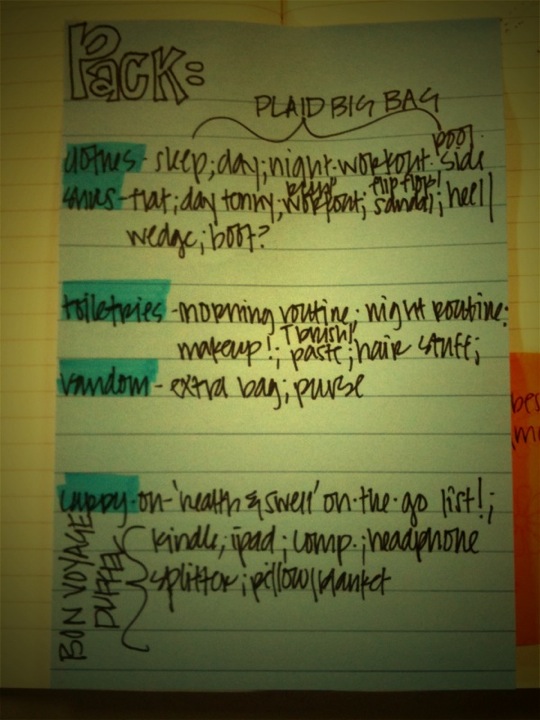 Pack:
PLAID BIG BAG
pool
clothes - sleep; day; night. workout. side
beach flip flops!
shoes - flat; day tommy; workout; sandal; heel/
wedge; boot?
toiletries - morning routine. night routine.
Tbrush/
makeup!; paste; hair stuff;
random - extra bag; purse
carry-on - 'health & swell' on-the-go list!;
kindle, ipad; comp.; headphone
splitter; pillow/blanket
BON VOYAGE
DUFFEL
bes